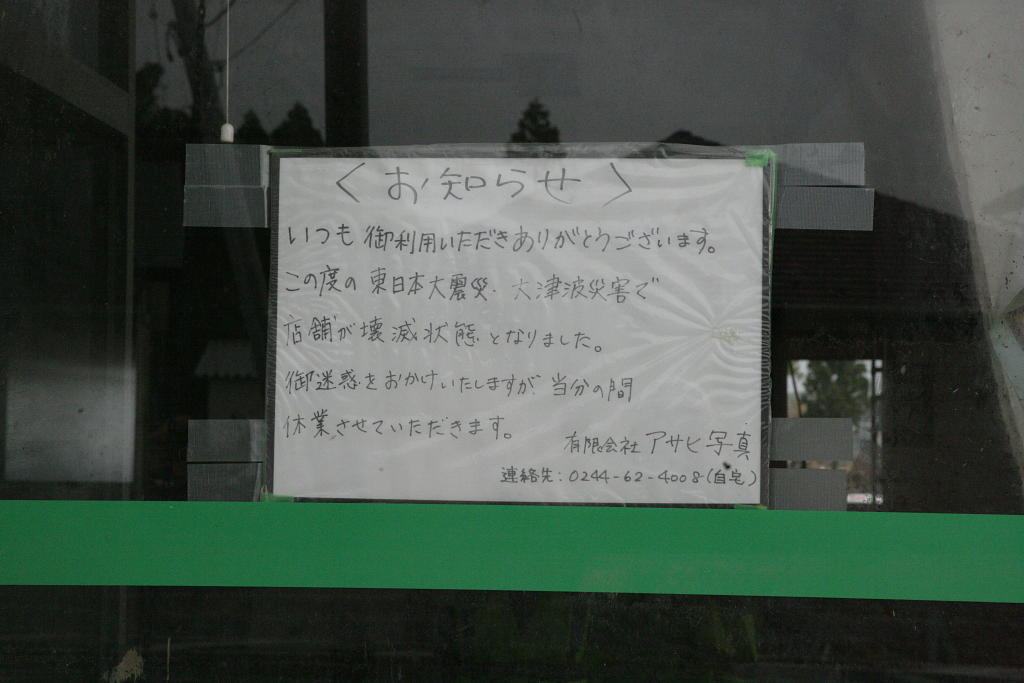 〈お知らせ〉
いつも御利用いただきありがとうございます。
この度の東日本大震災・大津波災害で
店舗が壊滅状態となりました。
御迷惑をおかけいたしますが当分の間
休業させていただきます。
有限会社アサヒ写真
連絡先:0244-62-4008(自宅)